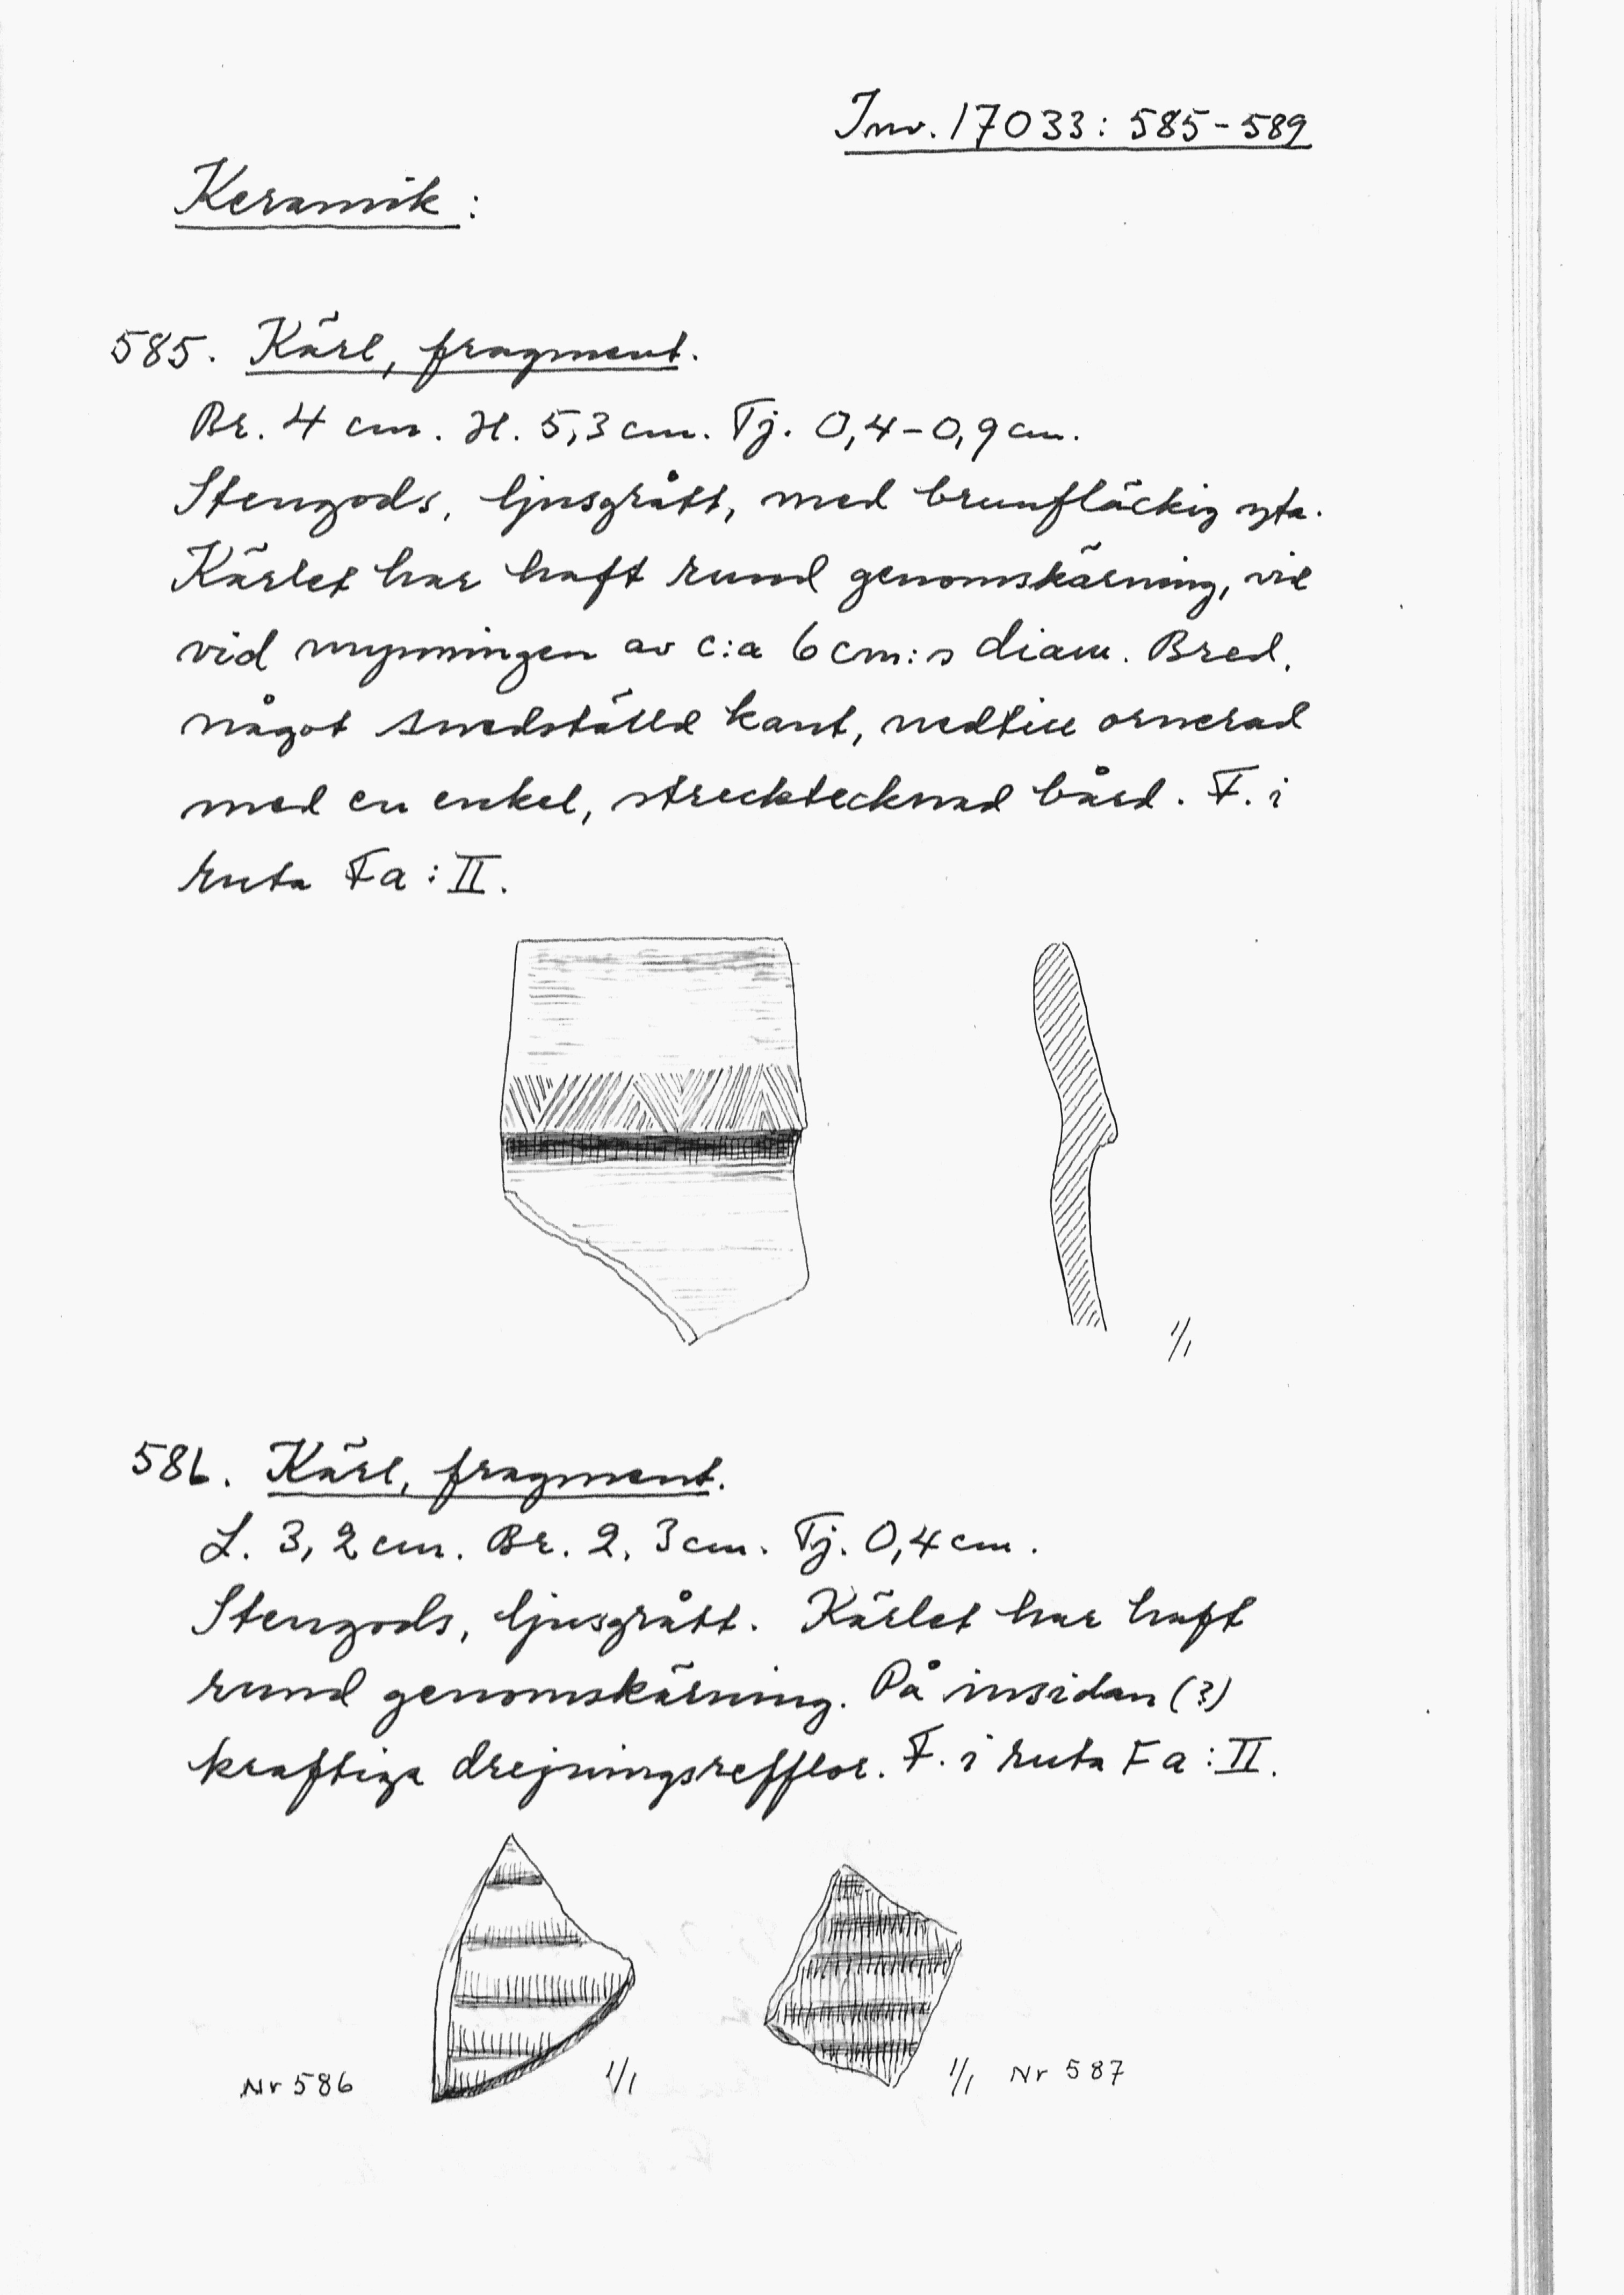 Inv. 17033: 585-589
Keramik:
585. Kärl, fragment.
Br. 4 cm. H. 5,3 cm. Tj. 0,4-0,9 cm.
Stengods, ljusgrått, med brunfläckig yta.
Kärlet har haft rund genomskärning, vil
vid mynningen av c:a 6 cm:s diam. Bred,
något snedställd kant, nedtill ornerad
med en enkel, strecktecknad bård. F. i
ruta Fa:II.
1/1
586. Kärl, fragment.
L. 3,2 cm. Br. 2,3 cm. Tj. 0,4 cm.
Stengods, ljusgrått. Kärlet har haft
rund genomskärning. På insidan (?)
kraftiga drejningsrefflor. F. i ruta Fa:II.
Nr 586 1/1 1/1 Nr 587